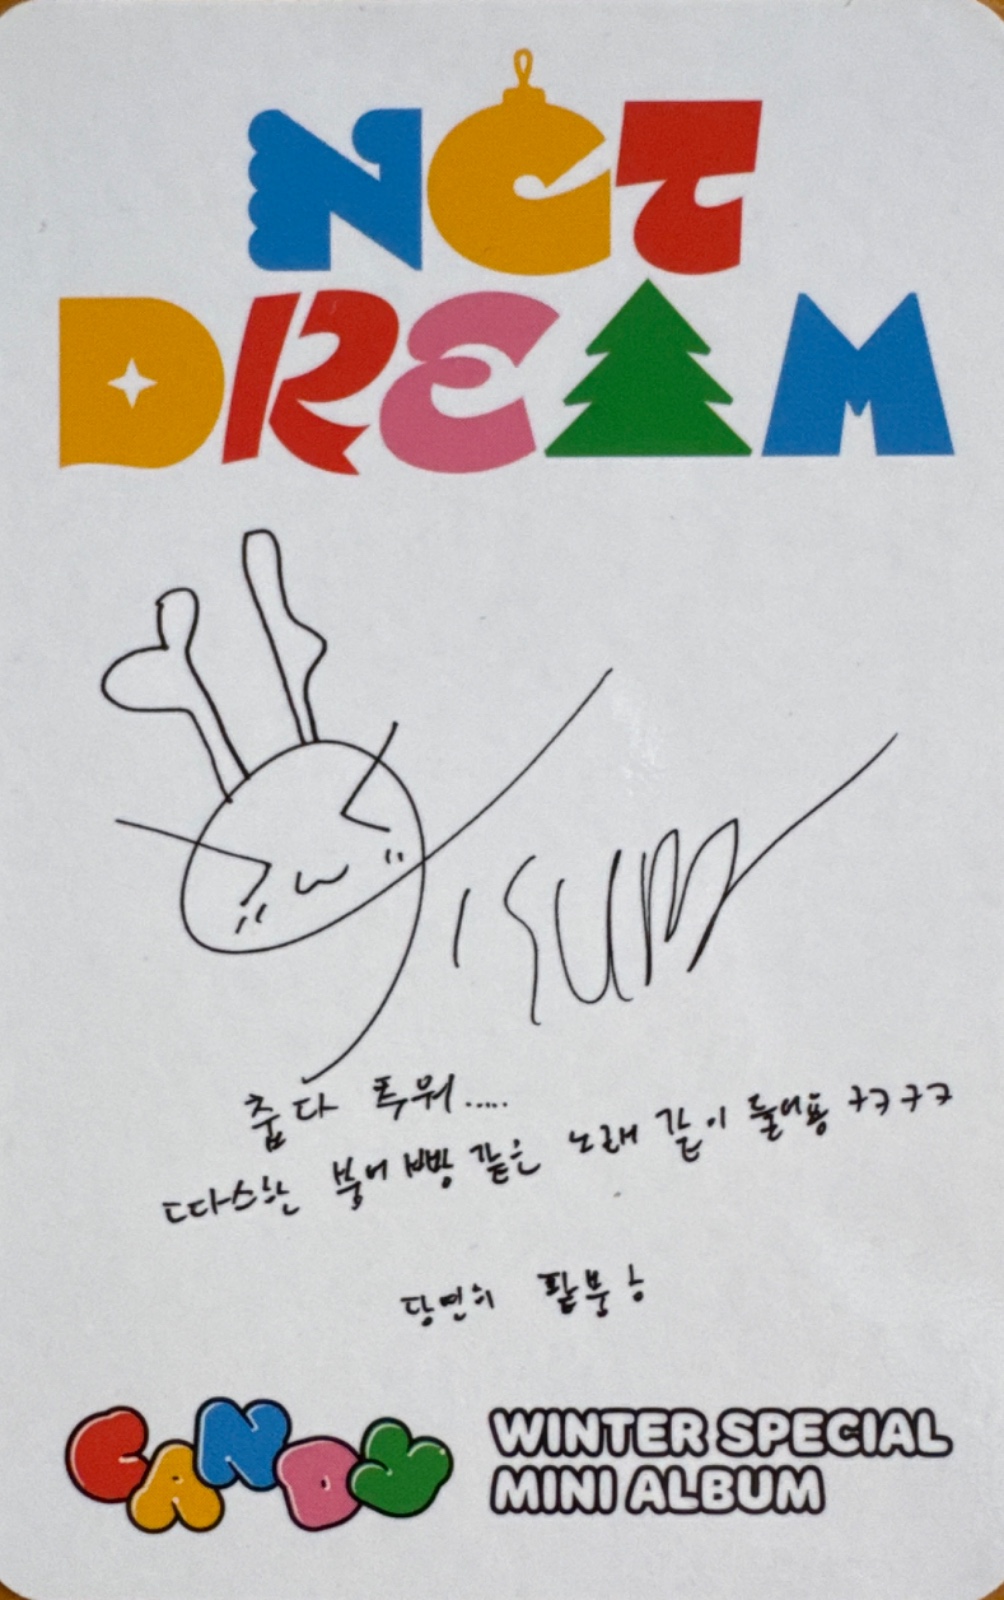 NCT
DREAM
춥다 추워.....
따스한 붕어빵 같은 노래 같이 들어용 ㅋㅋㅋㅋ
당연히 팥붕ㅎ
CANDY
WINTER SPECIAL
MINI ALBUM